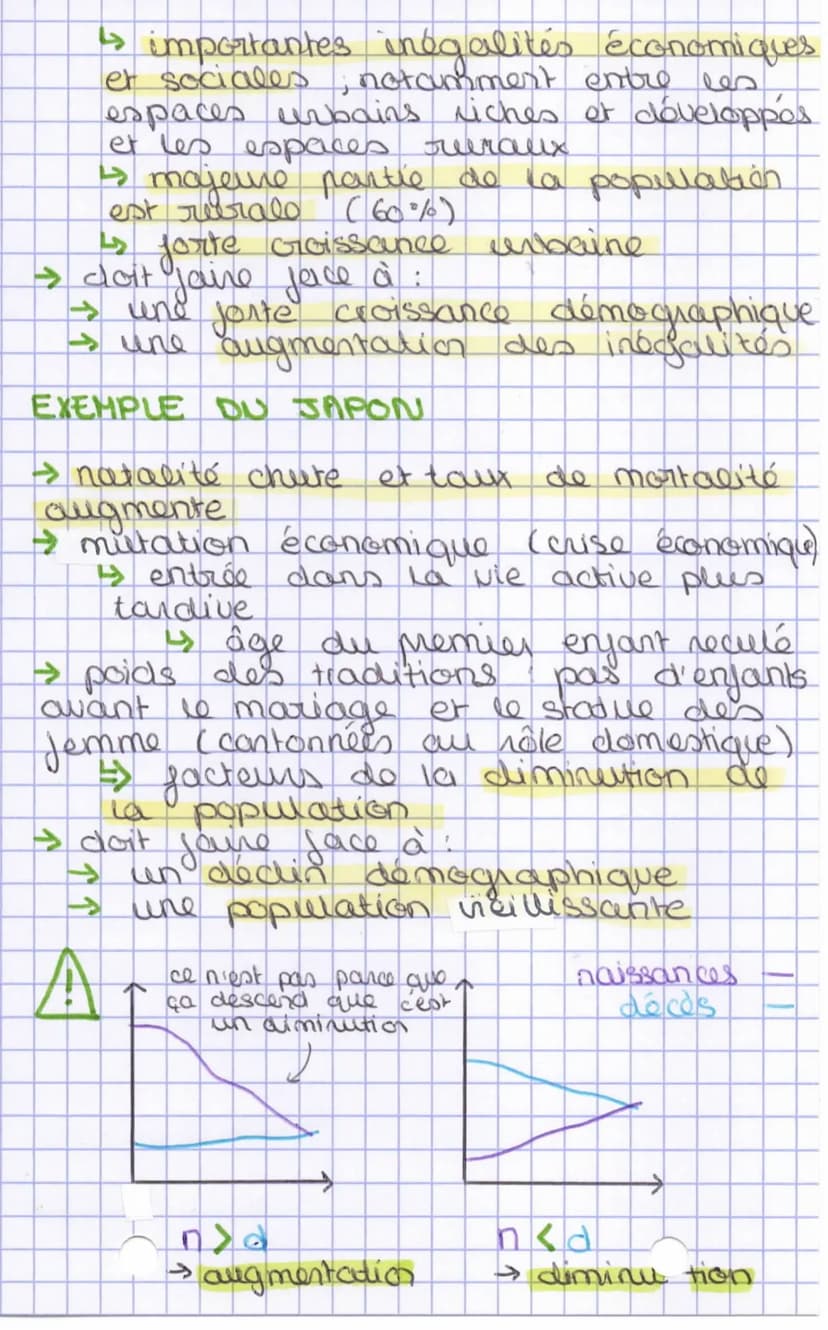 ↳ importantes inégalités économiques
et sociales, notamment entre les
espaces urbains riches et développés
et les espaces ruraux
↳ majeure partie de la population
est rurale (60%)
↳ forte croissance urbaine
→ doit faire face à :
→ une forte croissance démographique
→ une augmentation des inégalités
EXEMPLE DU JAPON
→ natalité chute et taux de mortalité
augmente
→ mutation économique (crise économique)
↳ entrée dans la vie active plus
tardive
↳ âge du premier enfant reculé
→ poids des traditions : pas d'enfants
avant le mariage et le statue des
femme (cantonnées au rôle domestique)
⇒ facteurs de la diminution de
la population
→ doit faire face à :
→ un déclin démographique
→ une population vieillissante
ce n'est pas parce que
ça descend que c'est
un diminution
naissances
décès
n > d
→ augmentation
n < d
→ diminution